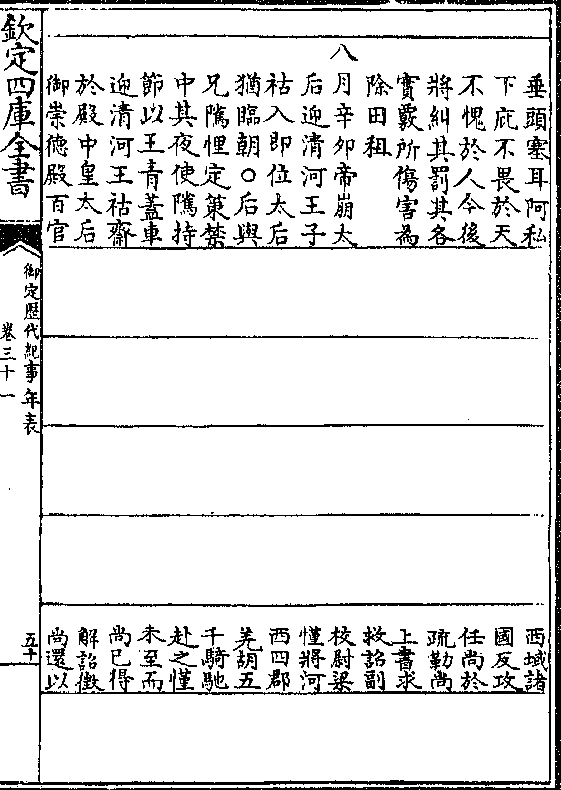 垂頭塞耳阿私
下庇不畏於天
不愧於人今後
將糾其罰其各
實覈所傷害為
除田租
八月辛卯帝崩太
后迎清河王子
祜入即位太后
猶臨朝○后與
兄隲悝定策禁
中其夜使隲持
節以王青蓋車
迎清河王祜齋
於殿中皇太后
御崇德殿百官
西域諸
國反攻
任尚於
疏勒尚
上書求
救詔副
校尉梁
慬將河
西四郡
羌胡五
千騎馳
赴之慬
未至而
尚已得
解詔徵
尚還以
欽定四庫全書
御定歷代紀事年表
卷三十一
五十